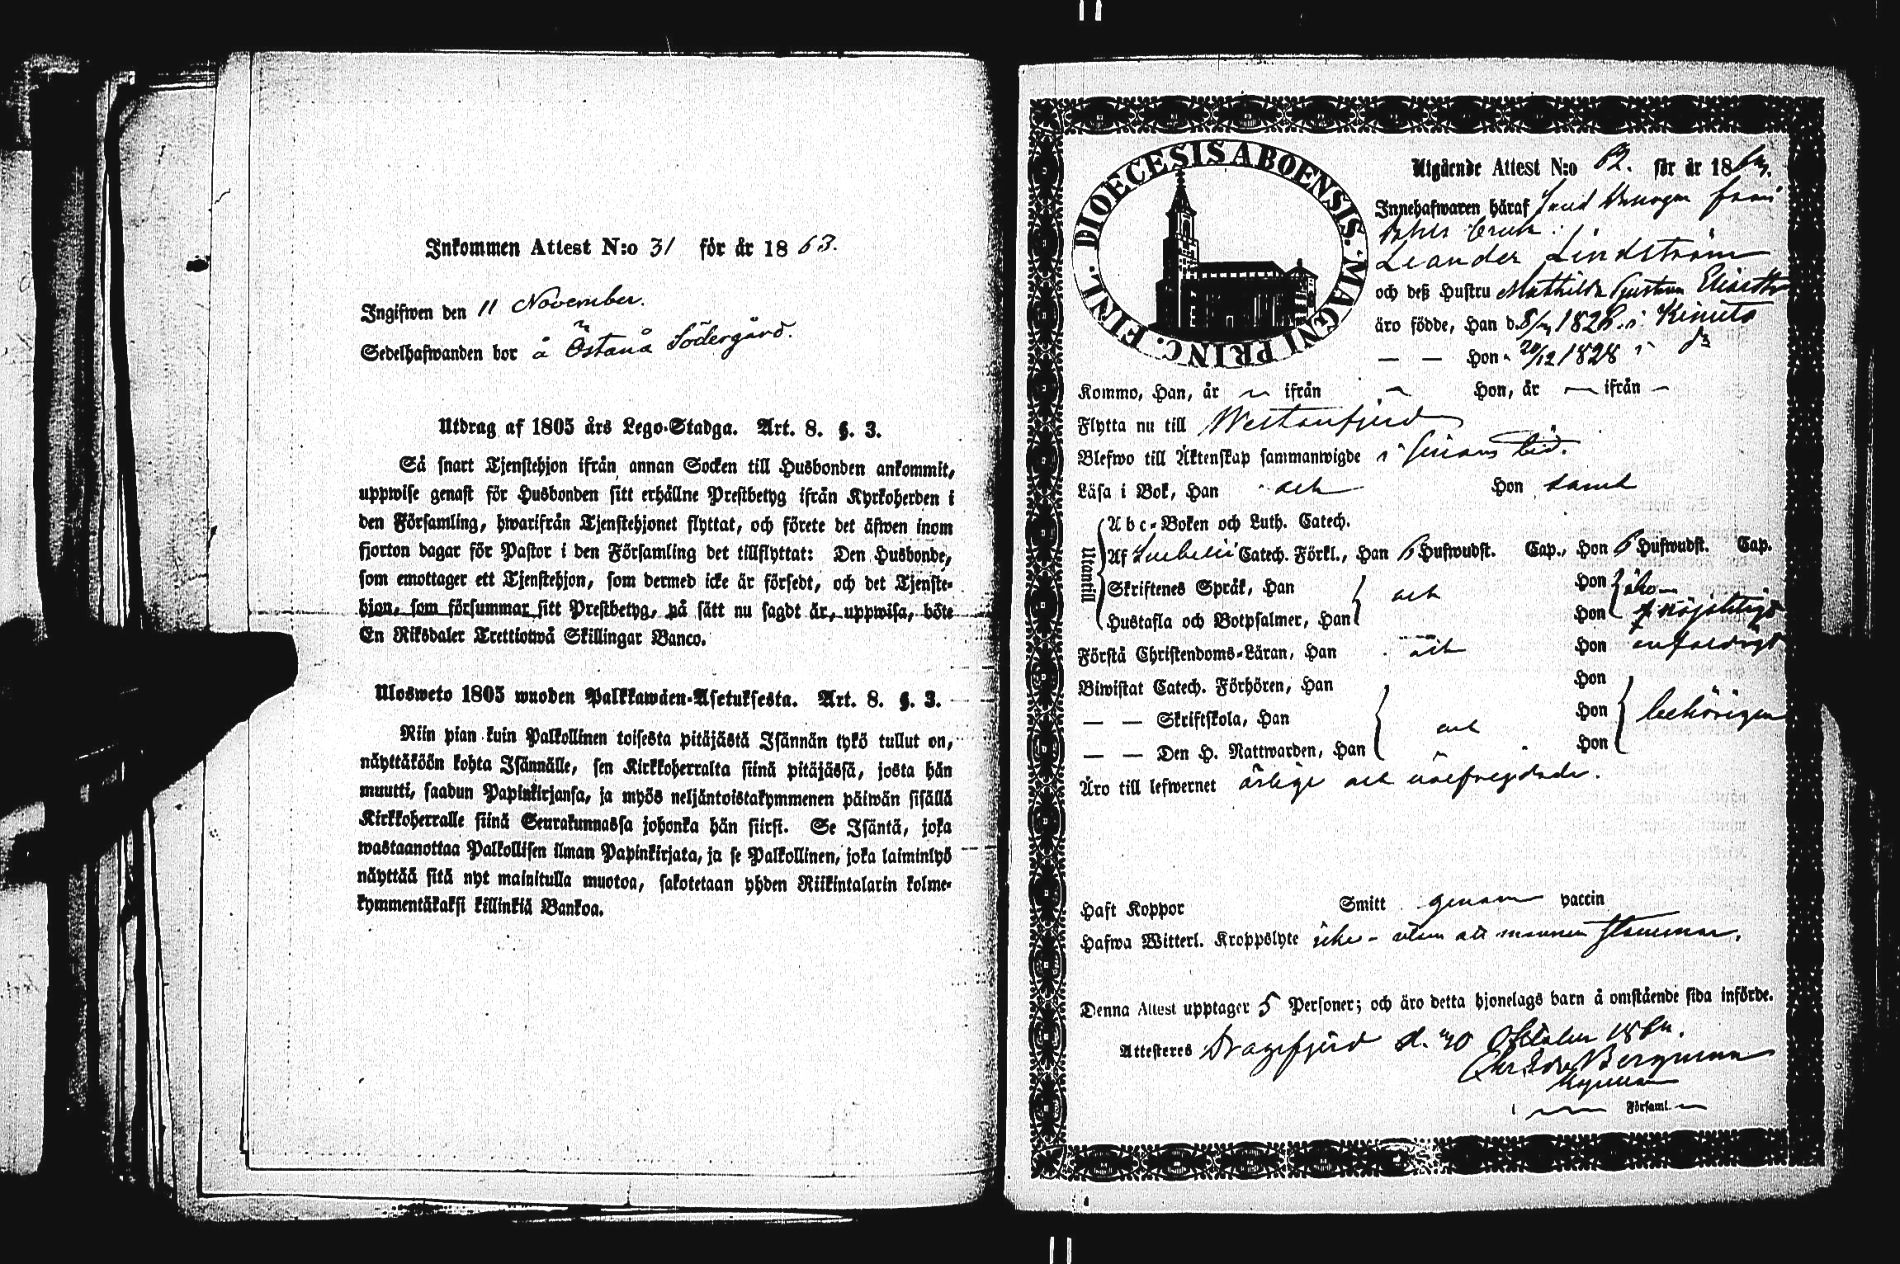 Inkommen Attest N:o 31 för år 1863.
Ingifwen den 11 November.
Sedelhafwanden bor å Östanå Södergård.
Utdrag af 1805 års Lego-Stadga. Art. 8. §. 3.
Så snart Tjenstehjon ifrån annan Socken till Husbonden ankommit,
uppwise genast för Husbonden sitt erhållne Prestbetyg ifrån Kyrkoherden i
den Församling, hwarifrån Tjenstehjonet flyttat, och förete det äfwen inom
fjorton dagar för Pastor i den Församling det tillflyttat: Den Husbonde,
som emottager ett Tjenstehjon, som dermed icke är försedt, och det Tjenste-
hjon, som försummar sitt Prestbetyg, på sätt nu sagdt är, uppwisa, böte
En Riksdaler Trettiotwå Skillingar Banco.
Ulosweto 1805 wuoden Palkkawäen-Asetuksesta. Art. 8. §. 3.
Niin pian kuin Palkollinen toisesta pitäjästä Isännän tykö tullut on,
näyttäköön kohta Isännälle, sen Kirkkoherralta siinä pitäjässä, josta hän
muutti, saadun Papinkirjansa, ja myös neljäntoistakymmenen päiwän sisällä
Kirkkoherralle siinä Seurakunnassa johonka hän siirsi. Se Isäntä, joka
wastaanottaa Palkollisen ilman Papinkirjata, ja se Palkollinen, joka laiminlyö
näyttää sitä nyt mainitulla muotoa, sakotetaan yhden Riikintalarin kolme-
kymmentäkaksi killinkiä Bankoa.
FINL. DIOECESIS ABOENSIS. MAGNI PRINC.
Utgående Attest N:o 62. för år 18
Innehafwaren häraf från
Leander Lindström
och deß Hustru Mathilda Gustava
äro födde, Han d. 1828 i Kimito
— — Hon 1828 i
Kommo, Han, år ~ ifrån ~ Hon, år ~ ifrån ~
Flytta nu till Westanfjerd
Blefwo till Äktenskap sammanwigde i tid.
Läsa i Bok, Han och Hon samt
Utantill
Abc-Boken och Luth. Catech.
Af Catech. Förkl., Han 6 Hufwudst. Cap., Hon 6 Hufwudst. Cap.
Skriftenes Språk, Han och Hon
Hustafla och Botpsalmer, Han Hon nöjaktigt
Förstå Christendoms-Läran, Han och Hon enfaldigt
Biwistat Catech. Förhören, Han Hon
— — Skriftskola, Han och Hon behörigen
— — Den H. Nattwarden, Han Hon
Äro till lefwernet ärlige och wälfregdade.
Haft Koppor Smitt genom vaccin
Hafwa Witterl. Kroppslyte icke - utom att mannen stammar.
Denna Attest upptager 5 Personer; och äro detta hjonelags barn å omstående sida införde.
Attesteres Dragsfjerd d. 30 Oktober
Bergman
Församl.